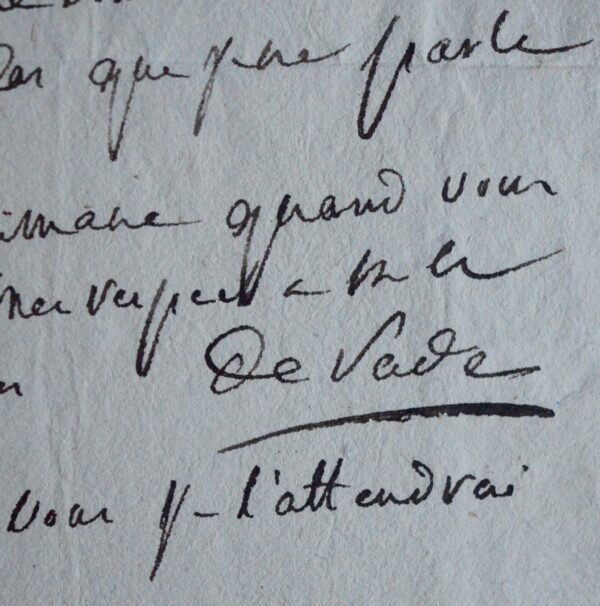 que je ne parle
quand vous
mes respects a m de
De Sade
vous je l'attendrai